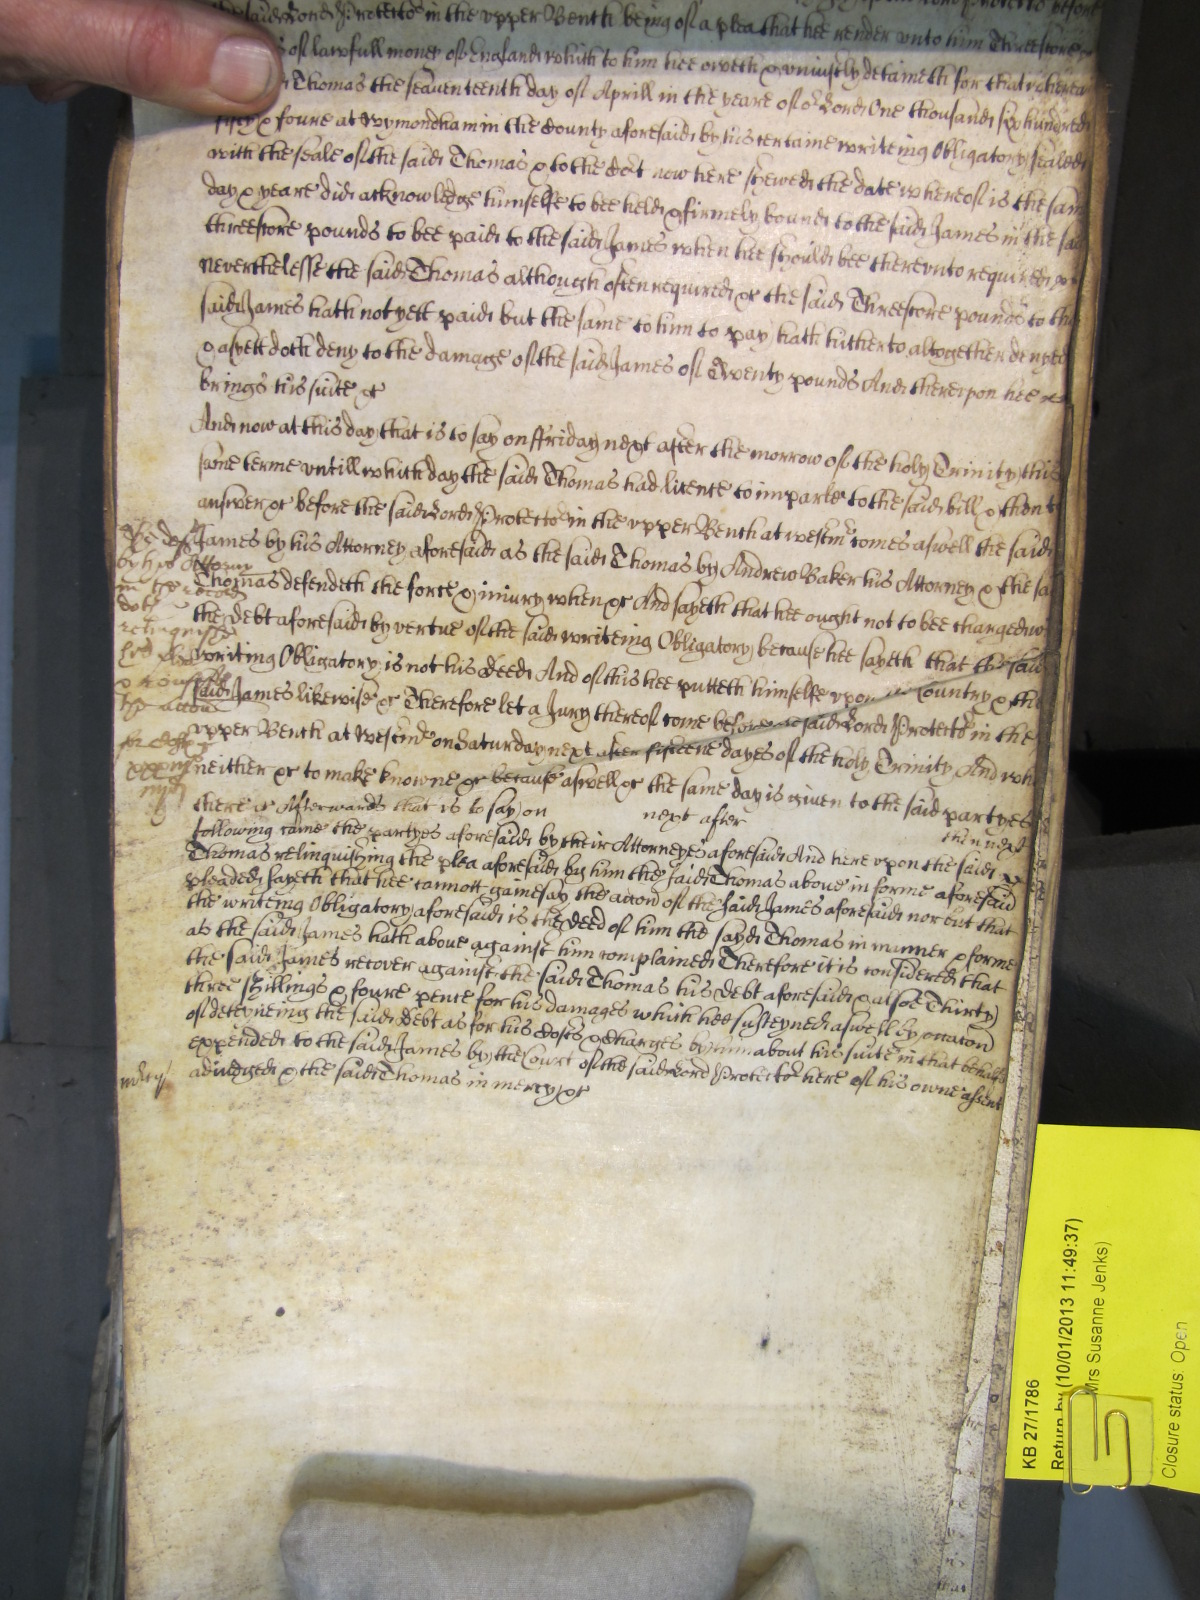 the said Lord Protector in the upper Bench being of a plea that hee render unto him Threescore
of lawfull money of England which to him hee oweth & uniustly detaineth for that wherea
Thomas the seaventeenth day of Aprill in the yeare of or Lord One thousand six hundred
fifty & foure at Wymondham in the County aforesaid by his certaine writeing Obligatory sealed
with the seale of the said Thomas & to the Cort now here shewed the date whereof is the sam
day & yeare did acknowledge himselfe to bee held & firmely bound to the said James in the sai
threescore pounds to bee paid to the said James when hee should bee thereunto required
neverthelesse the said Thomas although often required &c the said Threescore pounds to the
said James hath not yett paid but the same to him to pay hath hitherto altogether denyed
& as yett doth deny to the damage of the said James of Twenty pounds And thereupon hee
brings his suite &c
And now at this day that is to say on ffriday next after the morrow of the holy Trinity this
same terme untill which day the said Thomas had licence to imparle to the said bill & then t
answer &c before the said Lord Protector in the upper Bench at Westmr comes aswell the said
James by his Attorney aforesaid as the said Thomas by Andrew Baker his Attorney & the sa
Thomas defendeth the force & iniury when &c And sayeth that hee ought not to bee charged w
the Debt aforesaid by vertue of the said writeing Obligatory because hee sayeth that the said
writing Obligatory is not his deed And of this hee putteth himselfe upon the Country & the
said James likewise &c Therefore let a Jury thereof come before the said Lord Protector in the
upper Bench at Westmr on Saturday next after fifteene dayes of the holy Trinity And who
neither &c to make knowne &c because aswell &c the same day is given to the said partyes
there &c Afterwards that is to say on next after then next
following came the partyes aforesaid by their Attorneyes aforesaid And here upon the said
Thomas relinquishing the plea aforesaid by him the said Thomas above in forme aforesaid
pleaded sayeth that hee cannott gainesay the accon of the said James aforesaid nor but that
the writeing Obligatory aforesaid is the deed of him the sayd Thomas in manner & forme
as the said James hath above against him complained Therefore it is considered that
the said James recover against the said Thomas his debt aforesaid & alsoe Thirty
three shillings & foure pence for his damages which hee susteyned aswell by occacon
of deteyneing the said debt as for his Costs & charges by him about his suite in that behalfe
expended to the said James by the Court of the said Lord Protector here of his owne assent
adiudged & the said Thomas in mercy &c
by his Attorny
in the record
doth
relinquish
his plea
the accon
mercy
KB 27/1786
Return by (10/01/2013 11:49:37)
Mrs Susanne Jenks)
Closure status: Open